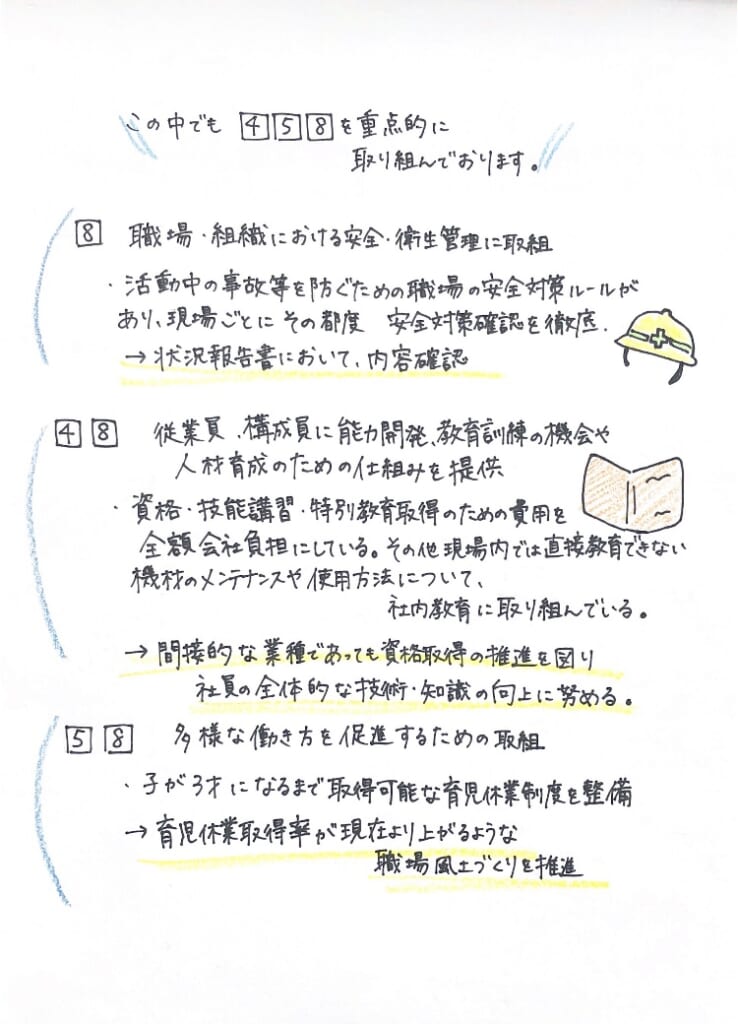 この中でも 4 5 8 を重点的に
取り組んでおります。
8 職場・組織における安全・衛生管理に取組
・活動中の事故等を防ぐための職場の安全対策ルールが
あり、現場ごとにその都度 安全対策確認を徹底.
→ 状況報告書において、内容確認
4 8 従業員、構成員に能力開発、教育訓練の機会や
人材育成のための仕組みを提供
・資格・技能講習・特別教育取得のための費用を
全額会社負担にしている。その他現場内では直接教育できない
機材のメンテナンスや使用方法について、
社内教育に取り組んでいる。
→ 間接的な業種であっても資格取得の推進を図り
社員の全体的な技術・知識の向上に努める。
5 8 多様な働き方を促進するための取組
・子が3才になるまで取得可能な育児休業制度を整備
→ 育児休業取得率が現在より上がるような
職場風土づくりを推進